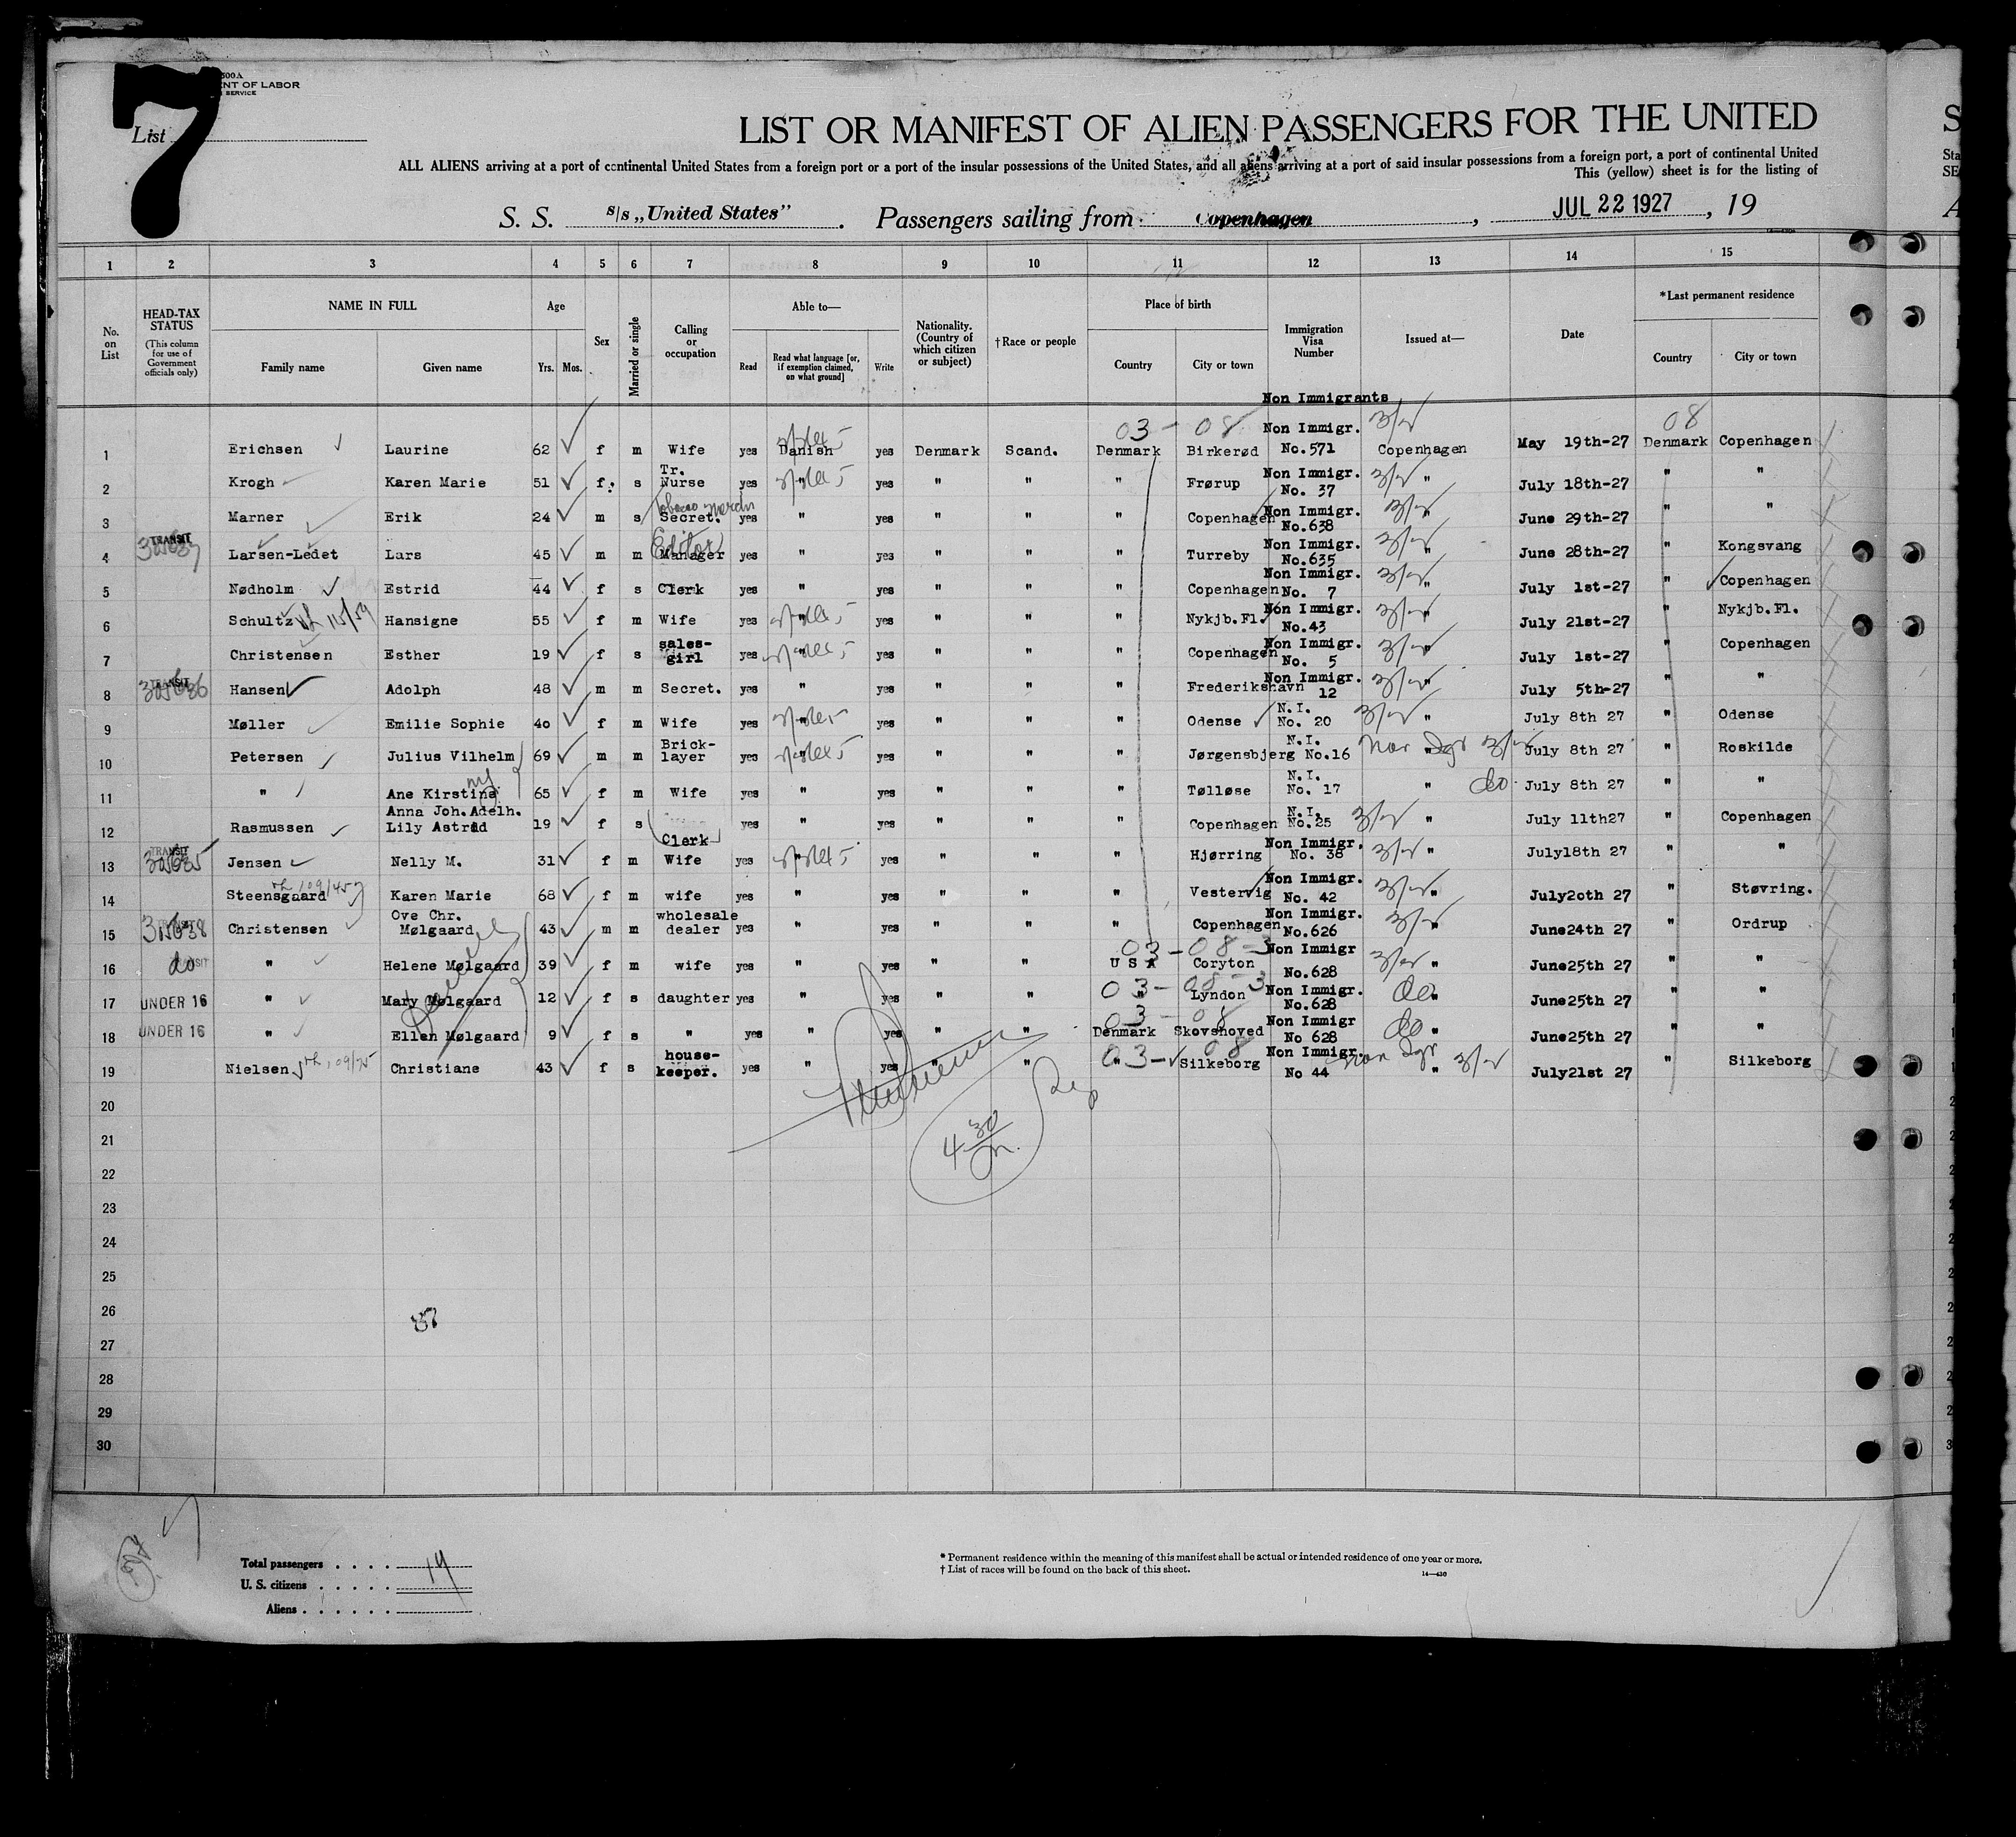 7
500A
ENT OF LABOR
SERVICE
List
LIST OR MANIFEST OF ALIEN PASSENGERS FOR THE UNITED
ALL ALIENS arriving at a port of continental United States from a foreign port or a port of the insular possessions of the United States, and all aliens arriving at a port of said insular possessions from a foreign port, a port of continental United
This (yellow) sheet is for the listing of
S. S. s/s „United States" . Passengers sailing from Copenhagen , JUL 22 1927 , 19
1 2 3 4 5 6 7 8 9 10 11 12 13 14 15
No. on List
HEAD-TAX STATUS (This column for use of Government officials only)
NAME IN FULL
Family name Given name
Age
Yrs. Mos.
Sex
Married or single
Calling or occupation
Able to—
Read Read what language [or, if exemption claimed, on what ground] Write
Nationality. (Country of which citizen or subject)
†Race or people
Place of birth
Country City or town
Immigration Visa Number
Issued at—
Date
*Last permanent residence
Country City or town
Non Immigrants
03 - 08 08
1 Erichsen Laurine 62 f m Wife yes Danish yes Denmark Scand. Denmark Birkerød Non Immigr. No.571 Copenhagen May 19th-27 Denmark Copenhagen
2 Krogh Karen Marie 51 f s Tr. Nurse yes " yes " " " Frørup Non Immigr. No. 37 " July 18th-27 " "
3 Marner Erik 24 m s Secret. yes " yes " " " Copenhagen Non Immigr. No.638 " June 29th-27 " "
4 TRANSIT Larsen-Ledet Lars 45 m m Editor Manager yes " yes " " " Turreby Non Immigr. No.635 " June 28th-27 " Kongsvang
5 Nødholm Estrid 44 f s Clerk yes " yes " " " Copenhagen Non Immigr. No. 7 " July 1st-27 " Copenhagen
6 Schultz Hansigne 55 f m Wife yes " yes " " " Nykjb.Fl. Non Immigr. No.43 " July 21st-27 " Nykjb.Fl.
7 Christensen Esther 19 f s sales-girl yes " yes " " " Copenhagen Non Immigr. No. 5 " July 1st-27 " Copenhagen
8 TRANSIT 305636 Hansen Adolph 48 m m Secret. yes " yes " " " Frederikshavn Non Immigr. 12 " July 5th-27 " "
9 Møller Emilie Sophie 40 f m Wife yes " yes " " " Odense N.I. No. 20 " July 8th 27 " Odense
10 Petersen Julius Vilhelm 69 m m Brick-layer yes " yes " " " Jørgensbjerg N.I. No.16 " July 8th 27 " Roskilde
11 " Ane Kirstine 65 f m Wife yes " yes " " " Tølløse N.I. No. 17 " do July 8th 27 " "
12 Rasmussen Anna Joh. Adelh. Lily Astrid 19 f s Clerk yes " yes " " " Copenhagen N.I. No.25 " July 11th27 " Copenhagen
13 TRANSIT 305635 Jensen Nelly M. 31 f m Wife yes " yes " " " Hjørring Non Immigr. No. 38 " July18th 27 " "
14 Steensgaard Karen Marie 68 f m wife yes " yes " " " Vestervig Non Immigr. No. 42 " July2oth 27 " Støvring.
15 TRANSIT 305638 Christensen Ove Chr. Mølgaard 43 m m wholesale dealer yes " yes " " " Copenhagen Non Immigr. No.626 " June24th 27 " Ordrup
03-08-3
16 do TRANSIT " Helene Mølgaard 39 f m wife yes " yes " " U S A Coryton Non Immigr No.628 " June25th 27 " "
03-08-3
17 UNDER 16 " Mary Mølgaard 12 f s daughter yes " yes " " " Lyndon Non Immigr. No.628 do " June25th 27 " "
03-08
18 UNDER 16 " Ellen Mølgaard 9 f s " yes " yes " " Denmark Skovshoved Non Immigr No 628 do " June25th 27 " "
03- 08
19 Nielsen Christiane 43 f s house-keeper. yes " yes " " " Silkeborg Non Immigr. No 44 " July21st 27 " Silkeborg
20
21
22
23
24
25
26
27
28
29
30
4 30
Total passengers . . . . 19
U. S. citizens . . . . .
Aliens . . . . . .
* Permanent residence within the meaning of this manifest shall be actual or intended residence of one year or more.
† List of races will be found on the back of this sheet.
14—430